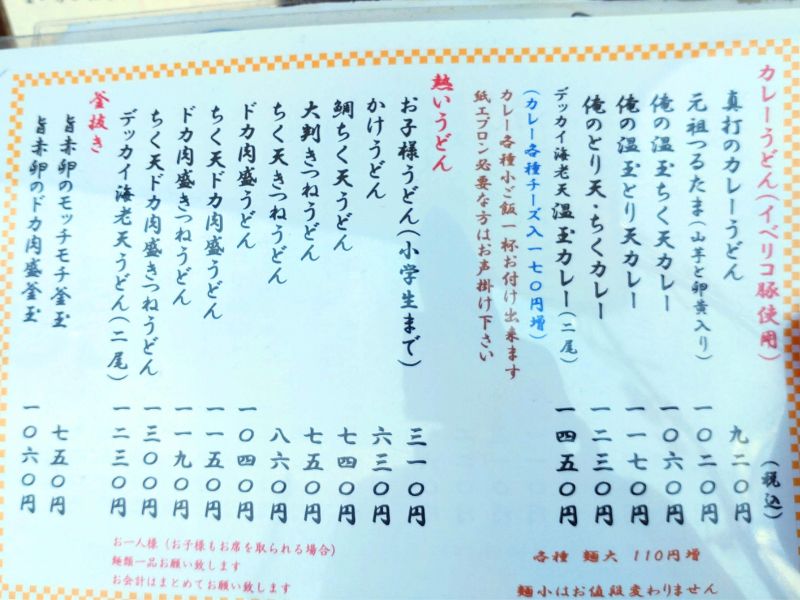 カレーうどん(イベリコ豚使用)
(税込)
真打のカレーうどん 九二〇円
元祖つるたま(山芋と卵黄入り) 一〇二〇円
俺の温玉ちく天カレー 一〇六〇円
俺の温玉とり天カレー 一一七〇円
俺のとり天・ちくカレー 一二三〇円
デッカイ海老天温玉カレー(二尾) 一四五〇円
(カレー各種チーズ入一七〇円増)
カレー各種小ご飯一杯お付け出来ます
紙エプロン必要な方はお声掛け下さい
熱いうどん
お子様うどん(小学生まで) 三一〇円
かけうどん 六三〇円
鯛ちく天うどん 七四〇円
大判きつねうどん 七五〇円
ちく天きつねうどん 八六〇円
ドカ肉盛うどん 一〇四〇円
ちく天ドカ肉盛うどん 一一五〇円
ドカ肉盛きつねうどん 一一九〇円
ちく天ドカ肉盛きつねうどん 一三〇〇円
デッカイ海老天うどん(二尾) 一二三〇円
釜抜き
旨赤卵のモッチモチ釜玉 七五〇円
旨赤卵のドカ肉盛釜玉 一〇六〇円
各種 麺大 110円増
麺小はお値段変わりません
お一人様(お子様もお席を取られる場合)
麺類一品お願い致します
お会計はまとめてお願い致します